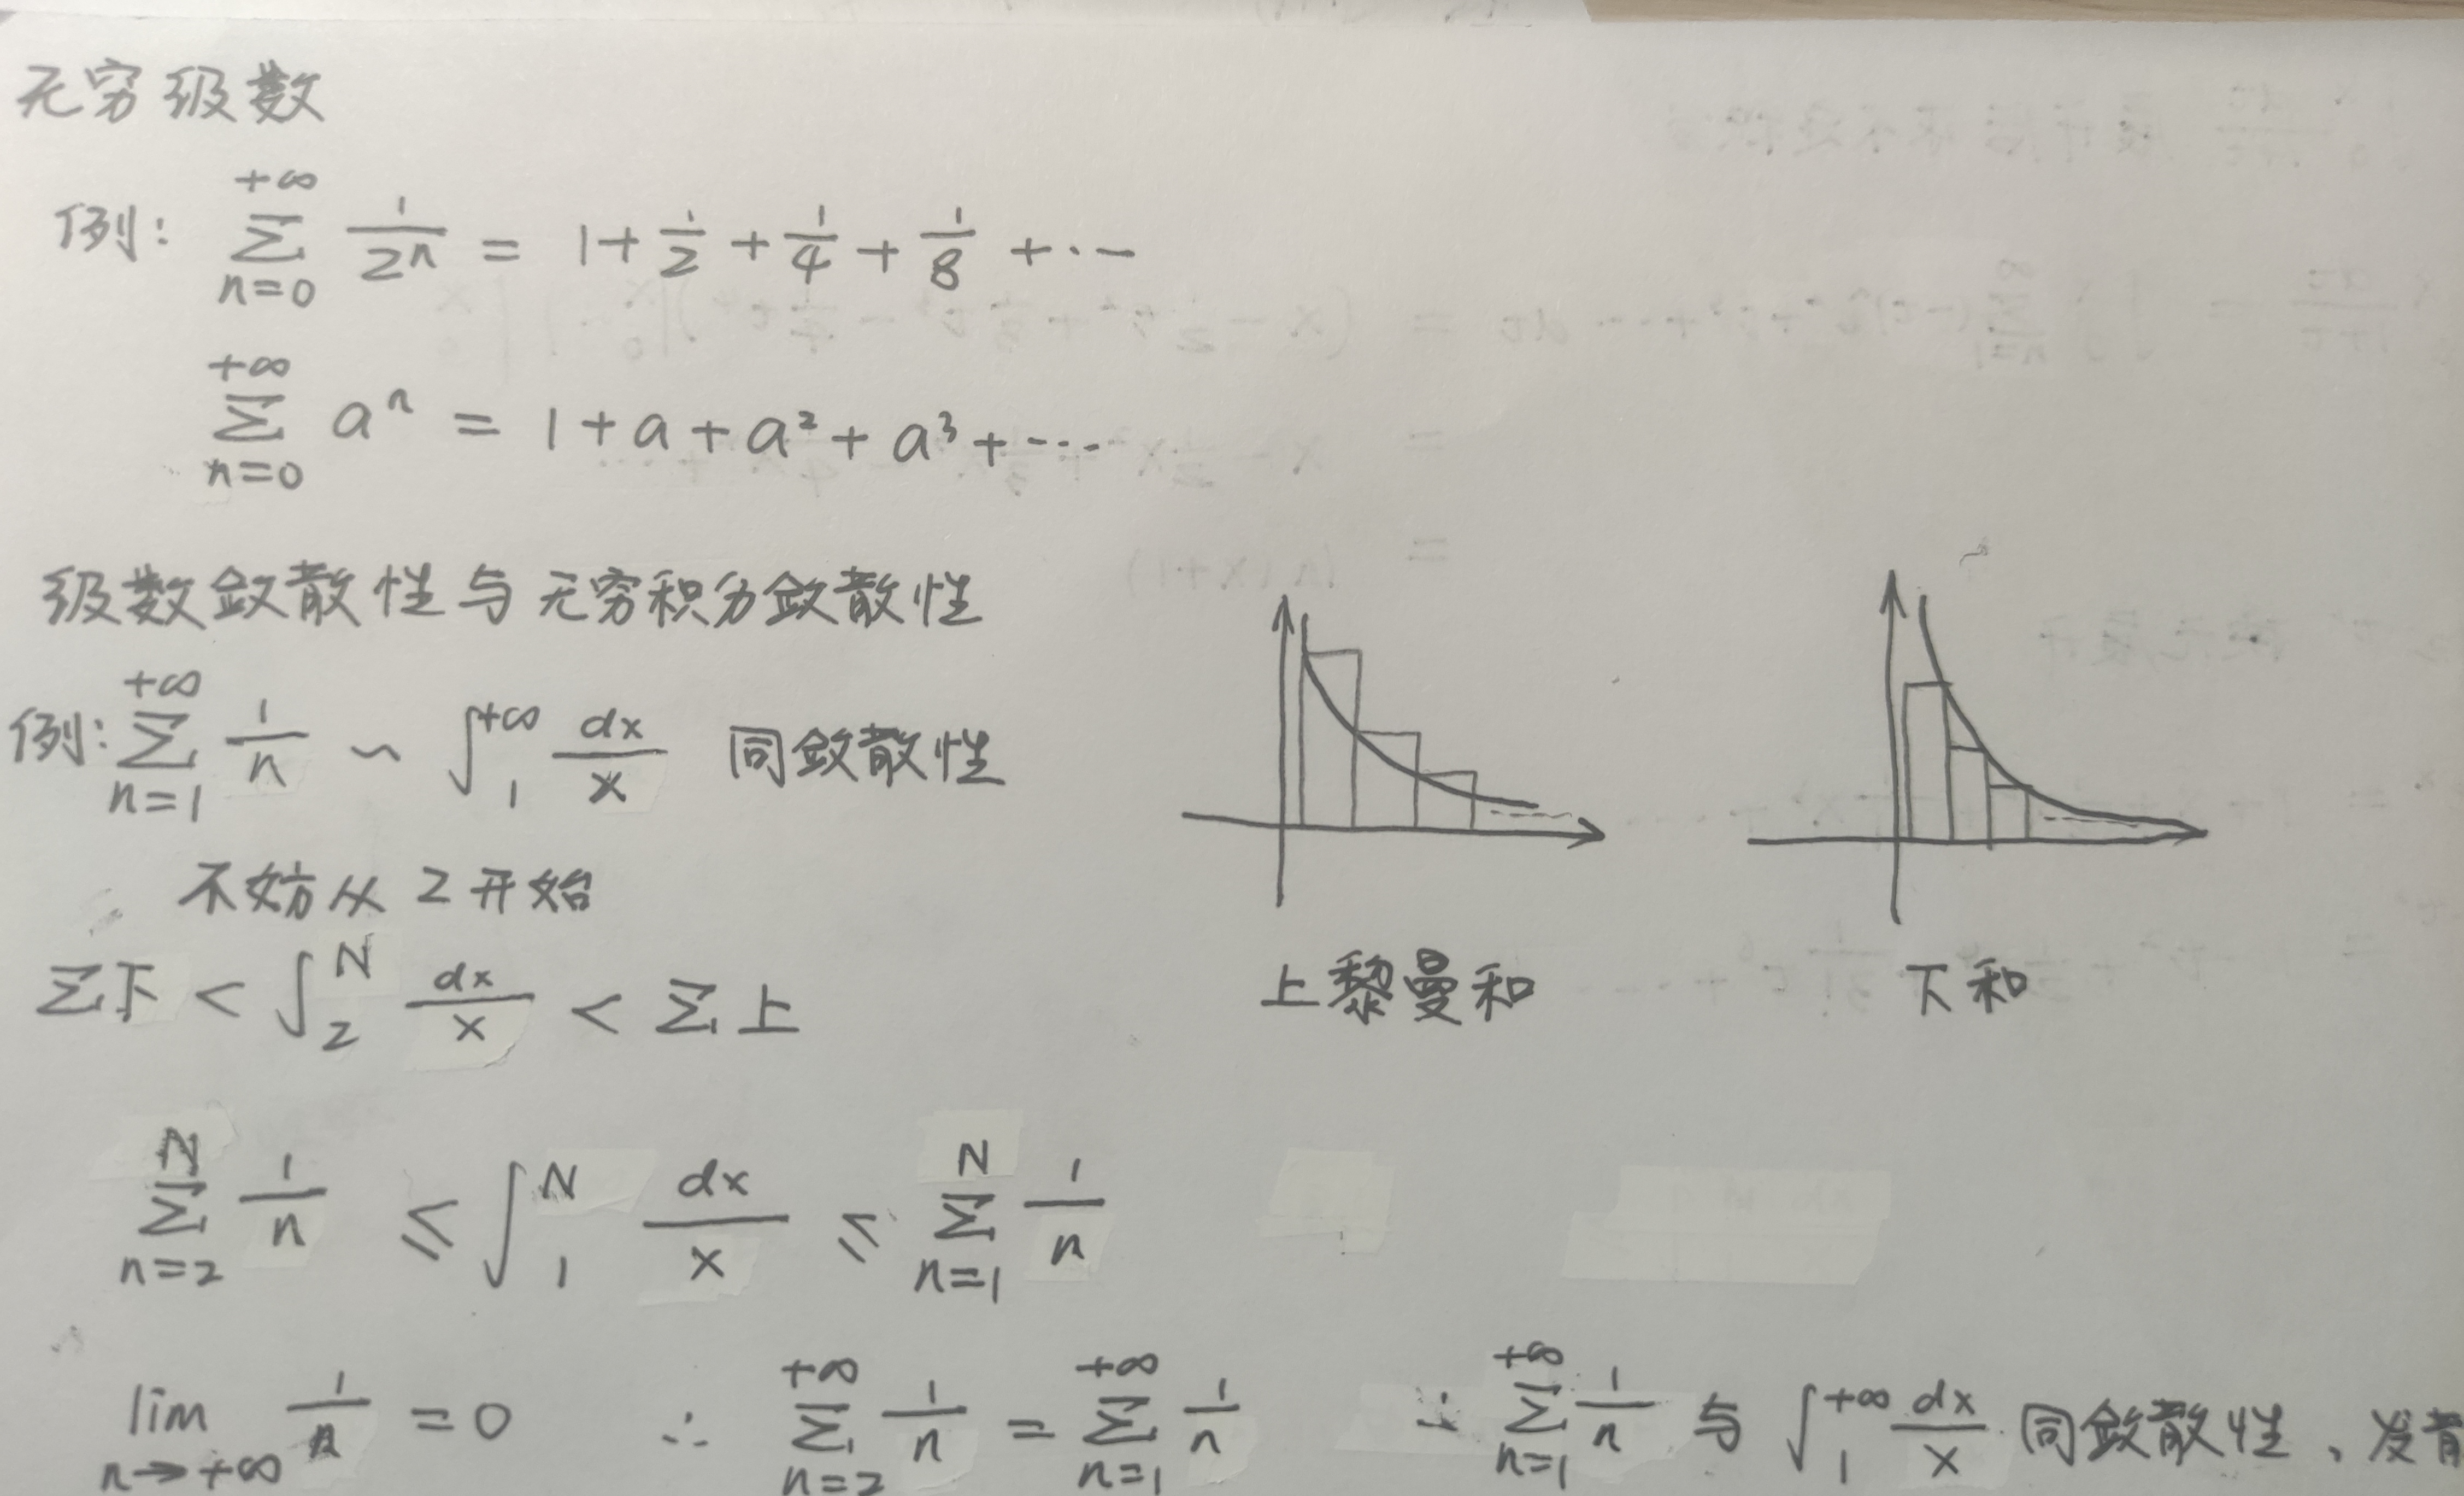 无穷级数
例: \sum_{n=0}^{+∞} \frac{1}{2^n} = 1 + \frac{1}{2} + \frac{1}{4} + \frac{1}{8} + ⋯
\sum_{n=0}^{+∞} a^n = 1 + a + a^2 + a^3 + ⋯
级数敛散性与无穷积分敛散性
例: \sum_{n=1}^{+∞} \frac{1}{n} ~ \int_1^{+∞} \frac{dx}{x} 同敛散性
不妨从 2 开始
Σ下 < \int_2^N \frac{dx}{x} < Σ上
上黎曼和
下和
\sum_{n=2}^{N} \frac{1}{n} ≤ \int_1^N \frac{dx}{x} ≤ \sum_{n=1}^{N} \frac{1}{n}
\lim_{n→+∞} \frac{1}{n} = 0 ∴ \sum_{n=2}^{+∞} \frac{1}{n} = \sum_{n=1}^{+∞} \frac{1}{n} ∴ \sum_{n=1}^{+∞} \frac{1}{n} 与 \int_1^{+∞} \frac{dx}{x} 同敛散性、发